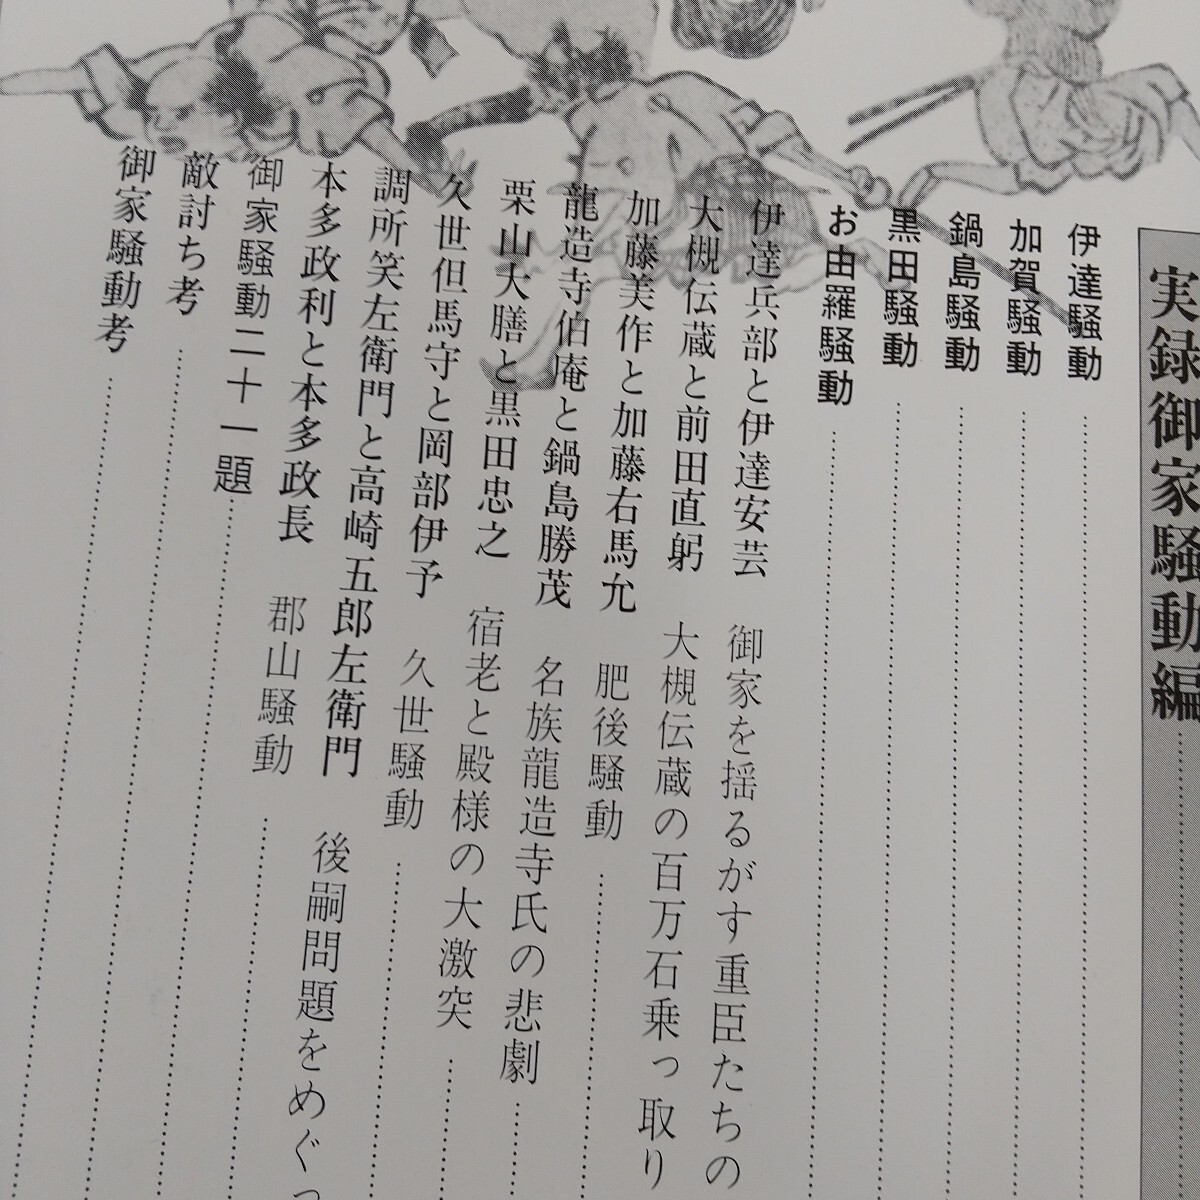 実録御家騒動編
伊達騒動
加賀騒動
鍋島騒動
黒田騒動
お由羅騒動
伊達兵部と伊達安芸 御家を揺るがす重臣たちの
大槻伝蔵と前田直躬 大槻伝蔵の百万石乗っ取り
加藤美作と加藤右馬允 肥後騒動
龍造寺伯庵と鍋島勝茂 名族龍造寺氏の悲劇
栗山大膳と黒田忠之 宿老と殿様の大激突
久世但馬守と岡部伊予 久世騒動
調所笑左衛門と高崎五郎左衛門 後嗣問題をめぐっ
本多政利と本多政長 郡山騒動
御家騒動二十一題
敵討ち考
御家騒動考